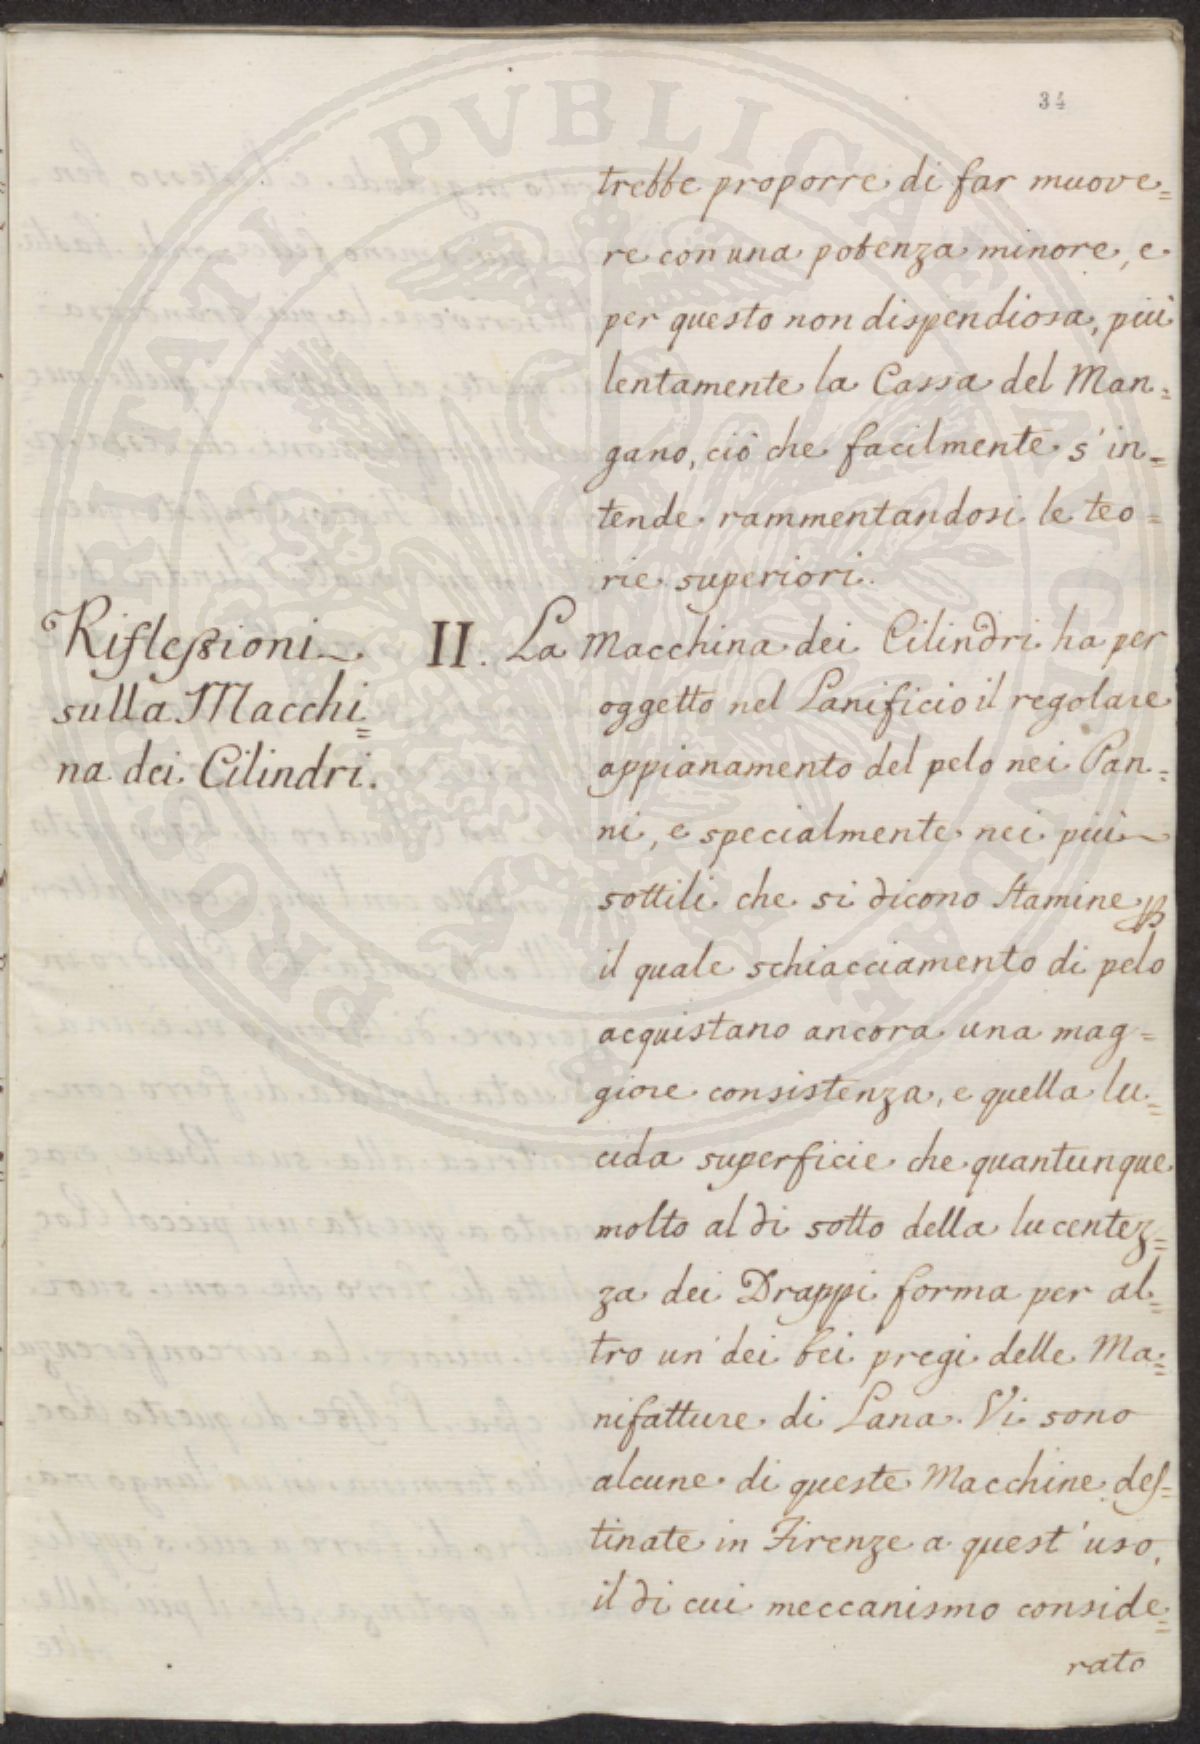 34
trebbe proporre di far muove=
re con una potenza minore, e
per questo non dispendiosa, più
lentamente la Cassa del Man=
gano, ciò che facilmente s'in=
tende rammentandosi le teo=
rie superiori.
Riflessioni
sulla Macchi=
na dei Cilindri.
II. La Macchina dei Cilindri ha per
oggetto nel Lanificio il regolare
appianamento del pelo nei Pan=
ni, e specialmente nei più
sottili che si dicono Stamine, p
il quale schiacciamento di pelo
acquistano ancora una mag=
giore consistenza, e quella lu=
cida superficie che quantunque
molto al di sotto della lucentez=
za dei Drappi forma per al=
tro un dei bei pregi delle Ma=
nifatture di Lana. Vi sono
alcune di queste Macchine des=
tinate in Firenze a quest'uso,
il di cui meccanismo conside=
rato
PROSPERITATI PVBLICAE AVGENDAE